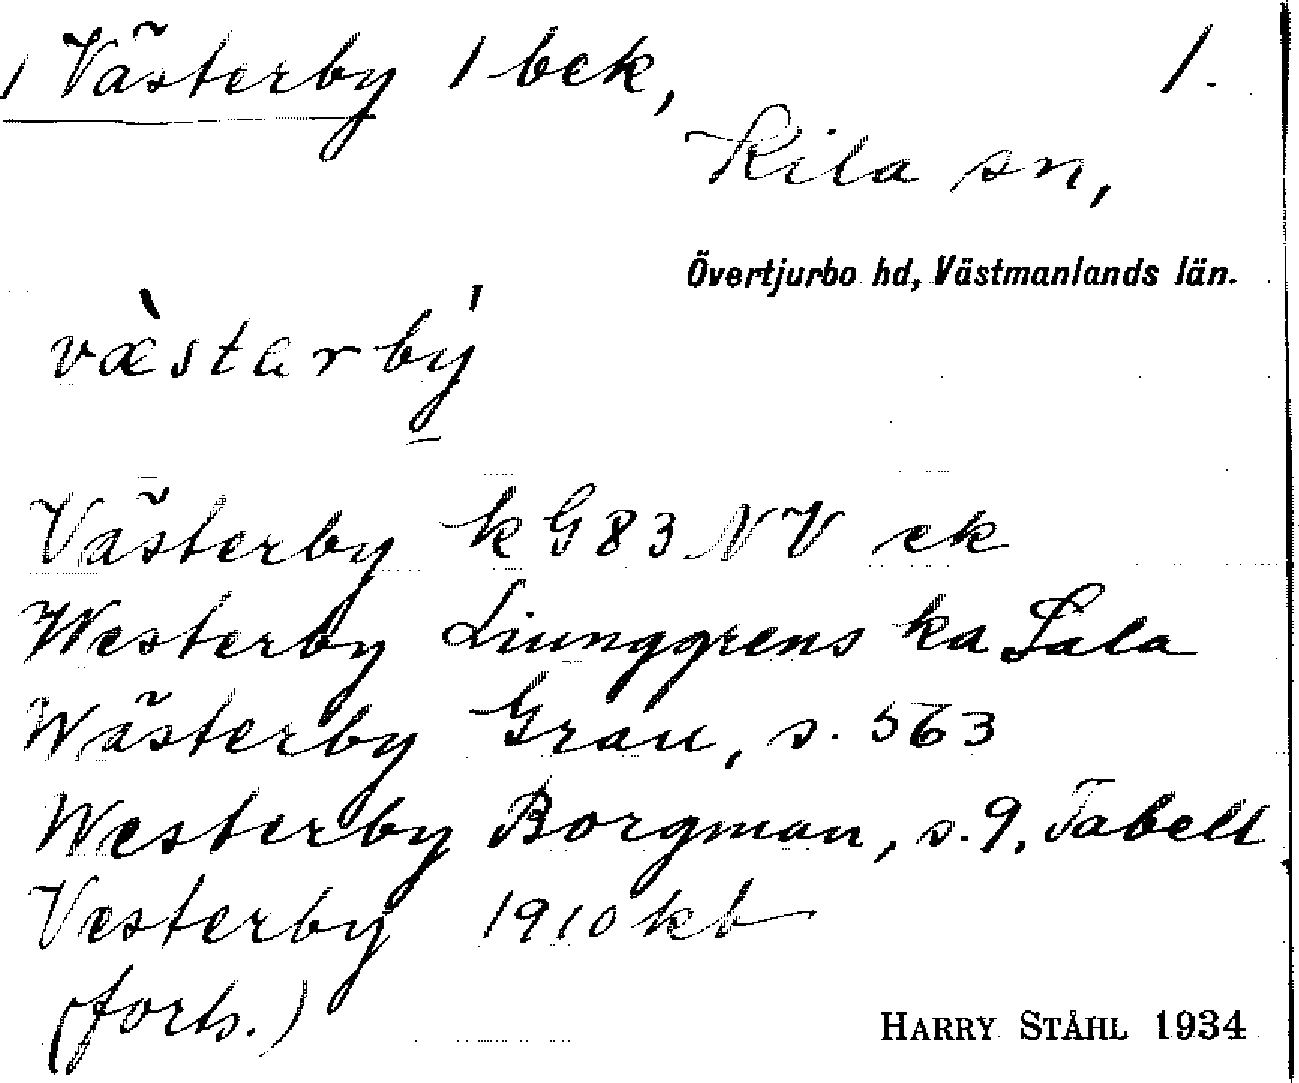 1 Västerby 1 bek, 1.
Kila sn,
Övertjurbo hd, Västmanlands län.
væ̀starbý
Västerby k G 83 NV ek
Westerby Liunggrens ka Sala
Wästerby Grau, s. 563
Westerby Borgman, s. 9, Tabell
Vesterby 1910 kb
(forts.)
HARRY STÅHL 1934